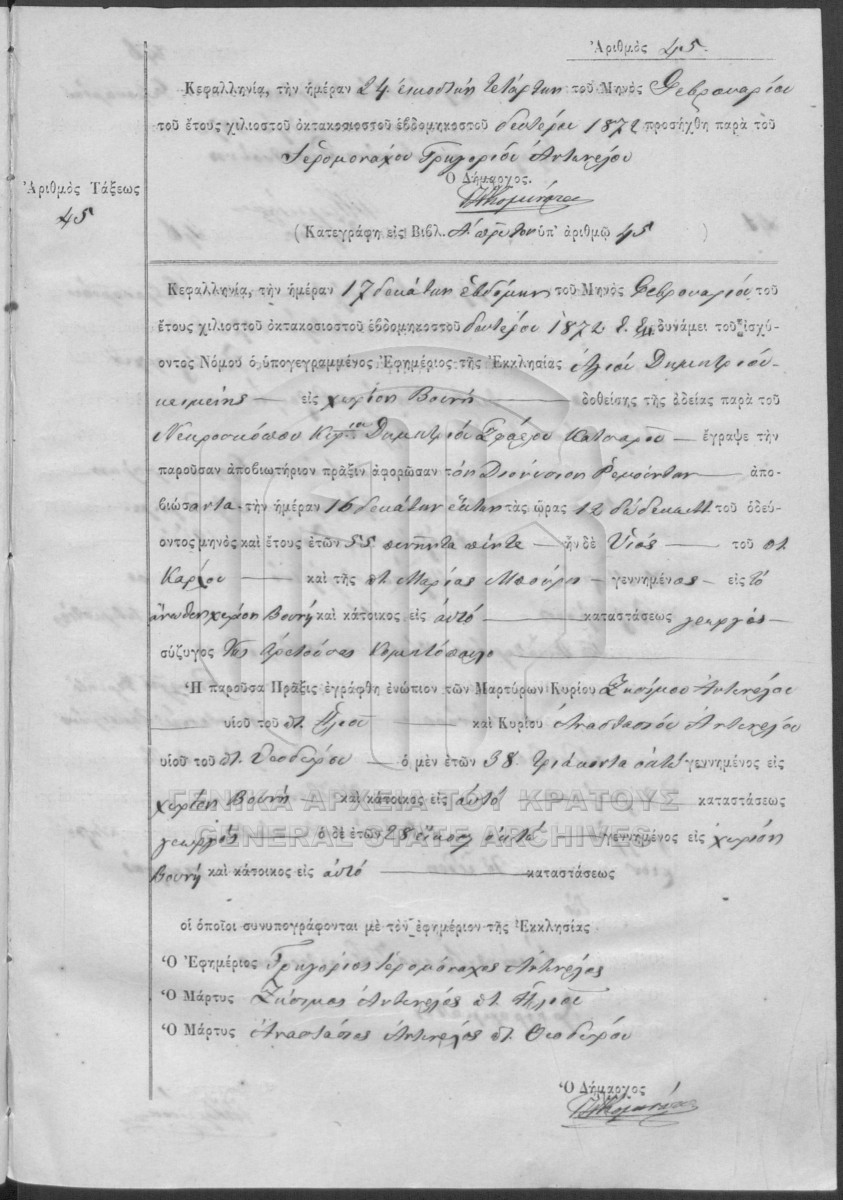 Ἀριθμὸς 45.
Κεφαλληνία, τὴν ἡμέραν 24 εἰκοστὴν τετάρτην τοῦ Μηνὸς Φεβρουαρίου
τοῦ ἔτους χιλιοστοῦ ὀκτακοσιοστοῦ ἑβδομηκοστοῦ δευτέρου 1872 προσήχθη παρὰ τοῦ
Ἱερομονάχου Γρηγορίου Ἀντωνέλου
Ὁ Δήμαρχος.
Ἀριθμὸς Τάξεως
45
( Κατεγράφη εἰς Βιβλ. Αʹ πρῶτον ὑπ' ἀριθμῷ 45 )
Κεφαλληνία, τὴν ἡμέραν 17 δεκάτην ἑβδόμην τοῦ Μηνὸς Φεβρουαρίου τοῦ
ἔτους χιλιοστοῦ ὀκτακοσιοστοῦ ἑβδομηκοστοῦ δευτέρου 1872 δυνάμει τοῦ ἰσχύ-
οντος Νόμου ὁ ὑπογεγραμμένος Ἐφημέριος τῆς Ἐκκλησίας Ἁγίου Δημητρίου
κειμένης εἰς χωρίον Βουνή δοθείσης τῆς ἀδείας παρὰ τοῦ
Νεκροσκόπου Δημητρίου Κατσαροῦ ἔγραψε τὴν
παροῦσαν ἀποβιωτήριον πρᾶξιν ἀφορῶσαν τὸν Διονύσιον Ρεμούνταν ἀπο-
βιώσαντα τὴν ἡμέραν 16 δεκάτην ἕκτην τὰς ὥρας 12 δώδεκα τοῦ ὁδεύ-
οντος μηνὸς καὶ ἔτους ἐτῶν 55 πενῆντα πέντε ἦν δὲ Υἱός τοῦ ποτ.
καὶ τῆς ποτ. Μαρίας γεννημένος εἰς τό
ἄνωθεν χωρίον Βουνή καὶ κάτοικος εἰς αὐτό καταστάσεως γεωργός
σύζυγος τῆς Ἀρετούσας
Ἡ παροῦσα Πρᾶξις ἐγράφθη ἐνώπιον τῶν Μαρτύρων Κυρίου Ζησίμου Ἀντωνέλου
υἱοῦ τοῦ ποτ. Ἠλίου καὶ Κυρίου Ἀναστασίου Ἀντωνέλου
υἱοῦ τοῦ ποτ. Θεοδώρου ὁ μὲν ἐτῶν 38 τριάκοντα ὀκτώ γεννημένος εἰς
χωρίον Βουνή καὶ κάτοικος εἰς αὐτό καταστάσεως
γεωργός ὁ δὲ ἐτῶν 28 εἴκοσι ὀκτώ γεννημένος εἰς χωρίον
Βουνή καὶ κάτοικος εἰς αὐτό καταστάσεως
οἱ ὁποῖοι συνυπογράφονται μὲ τὸν ἐφημέριον τῆς Ἐκκλησίας
Ὁ Ἐφημέριος Γρηγόριος Ἱερομόναχος Ἀντωνέλος
Ὁ Μάρτυς Ζήσιμος Ἀντωνέλος ποτ. Ἠλίου
Ὁ Μάρτυς Ἀναστάσιος Ἀντωνέλος ποτ. Θεοδώρου
Ὁ Δήμαρχος
ΓΕΝΙΚΑ ΑΡΧΕΙΑ ΤΟΥ ΚΡΑΤΟΥΣ
GENERAL STATE ARCHIVES